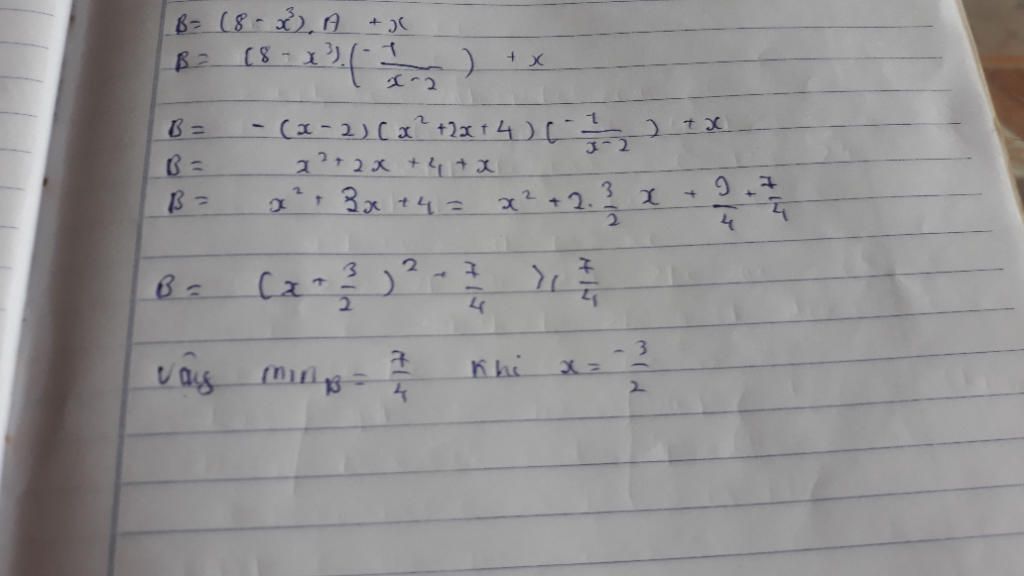 B = (8 - x³). A + x
B = (8 - x³).(-1/(x-2)) + x
B = -(x-2)(x²+2x+4)(-1/(x-2)) + x
B = x²+2x+4+x
B = x²+3x+4 = x²+2.3/2 x + 9/4 + 7/4
B = (x + 3/2)² + 7/4 ≥ 7/4
Vậy min B = 7/4 khi x = -3/2